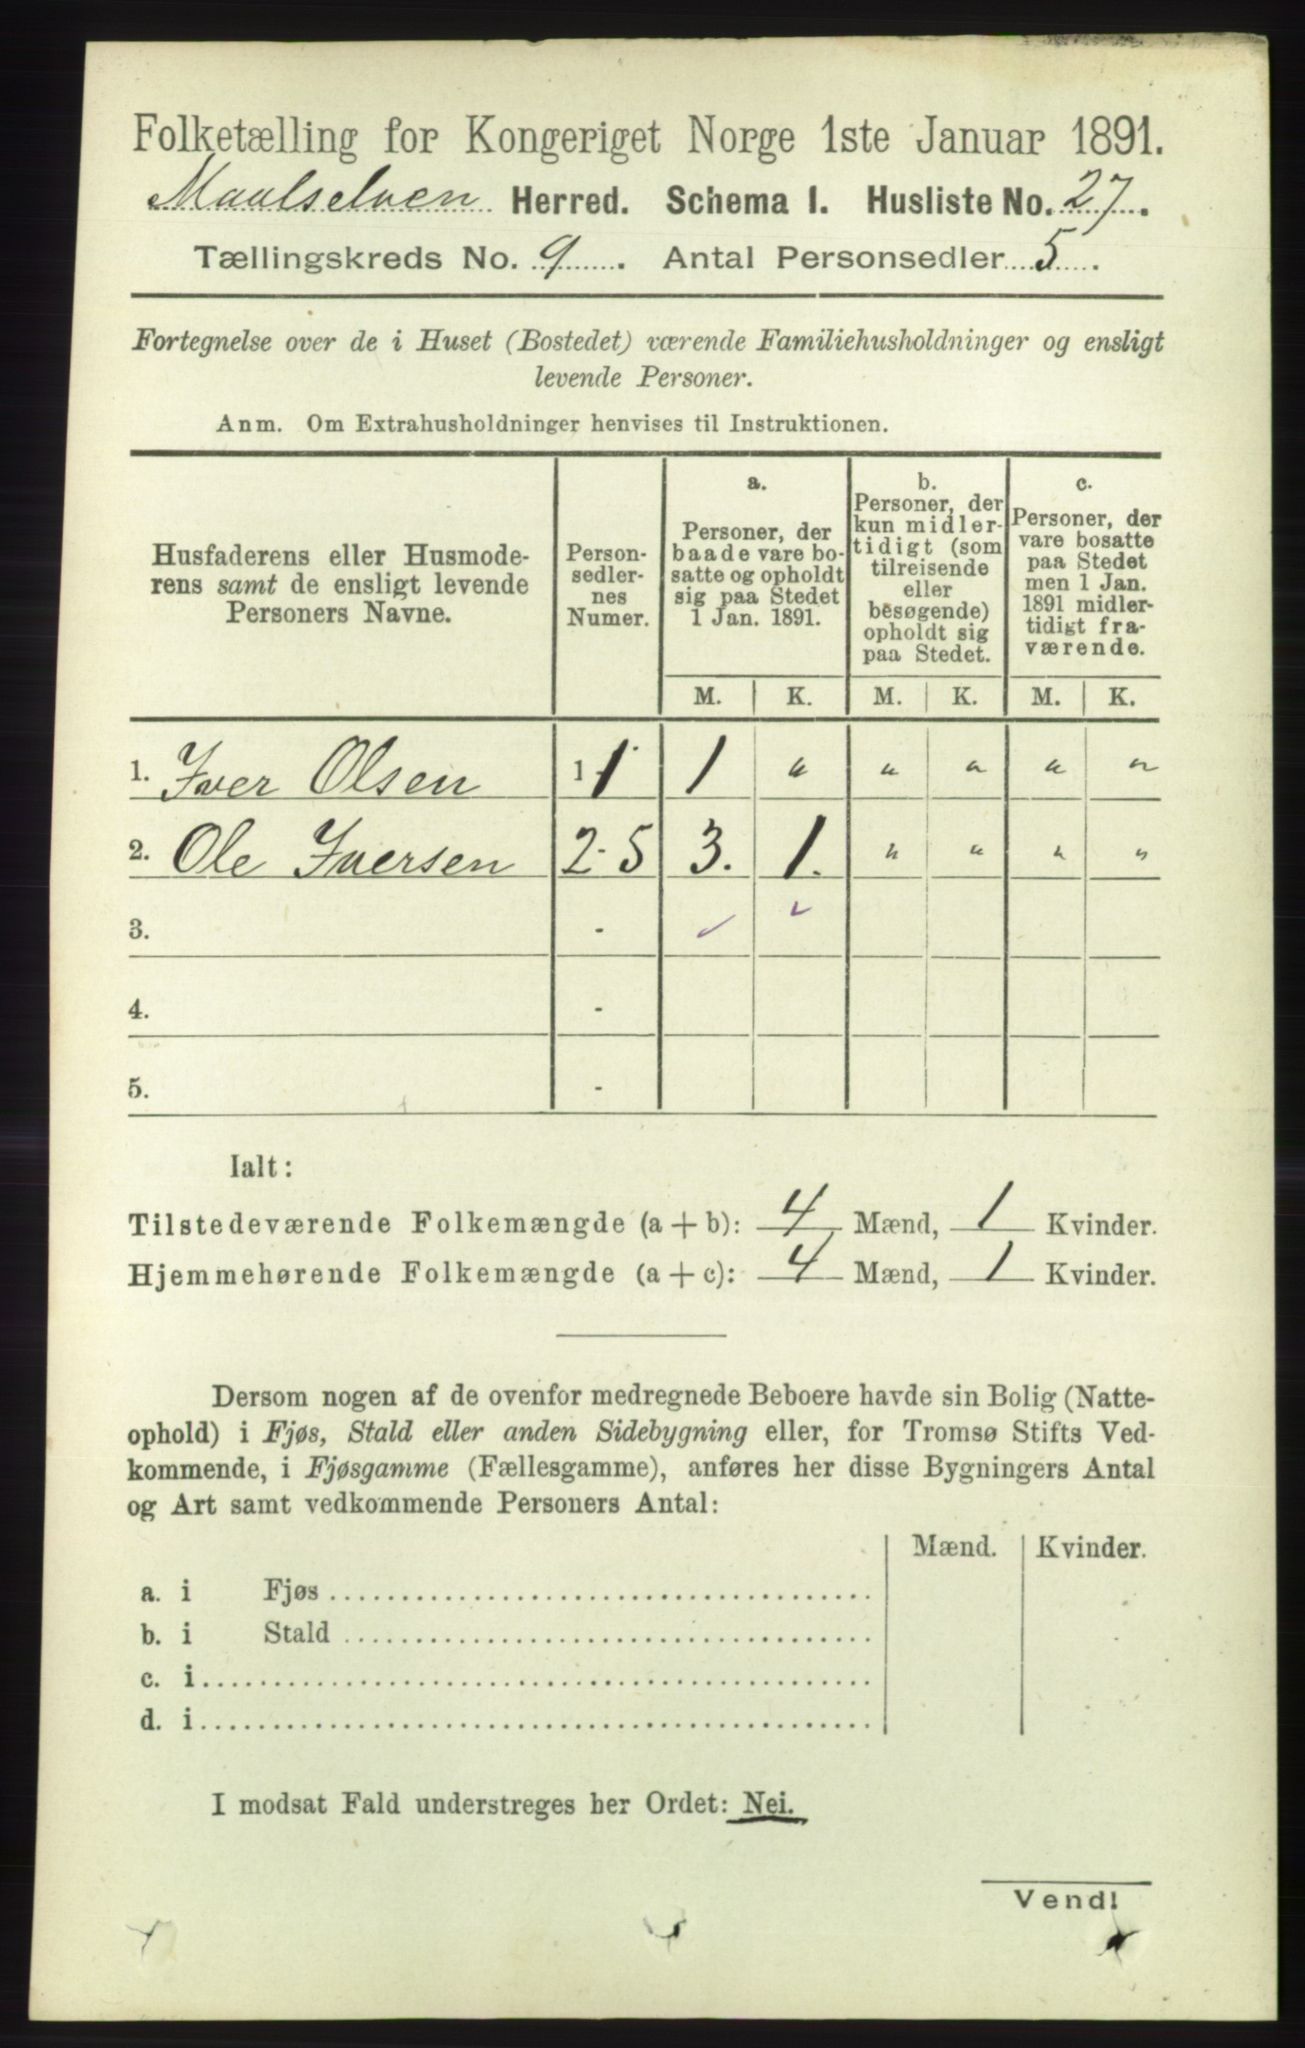 Folketælling for Kongeriget Norge 1ste Januar 1891.
Maalselven Herred. Schema I. Husliste No. 27.
Tællingskreds No. 9. Antal Personsedler 5.
Fortegnelse over de i Huset (Bostedet) værende Familiehusholdninger og ensligt
levende Personer.
Anm. Om Extrahusholdninger henvises til Instruktionen.
Husfaderens eller Husmode-
rens samt de ensligt levende
Personers Navne.
Person-
sedler-
nes
Numer.
a.
Personer, der
baade vare bo-
satte og opholdt
sig paa Stedet
1 Jan. 1891.
b.
Personer, der
kun midler-
tidigt (som
tilreisende
eller
besøgende)
opholdt sig
paa Stedet.
c.
Personer, der
vare bosatte
paa Stedet
men 1 Jan.
1891 midler-
tidigt fra-
værende.
M. K. M. K. M. K.
1. Iver Olsen 1 - 1 1 " " " " "
2. Ole Iversen 2 - 5 3. 1. " " " "
3. -
4. -
5. -
Ialt:
Tilstedeværende Folkemængde (a + b): 4 Mænd, 1 Kvinder.
Hjemmehørende Folkemængde (a + c): 4 Mænd, 1 Kvinder.
Dersom nogen af de ovenfor medregnede Beboere havde sin Bolig (Natte-
ophold) i Fjøs, Stald eller anden Sidebygning eller, for Tromsø Stifts Ved-
kommende, i Fjøsgamme (Fællesgamme), anføres her disse Bygningers Antal
og Art samt vedkommende Personers Antal:
Mænd. Kvinder.
a. i Fjøs
b. i Stald
c. i
d. i
I modsat Fald understreges her Ordet: Nei.
Vend!